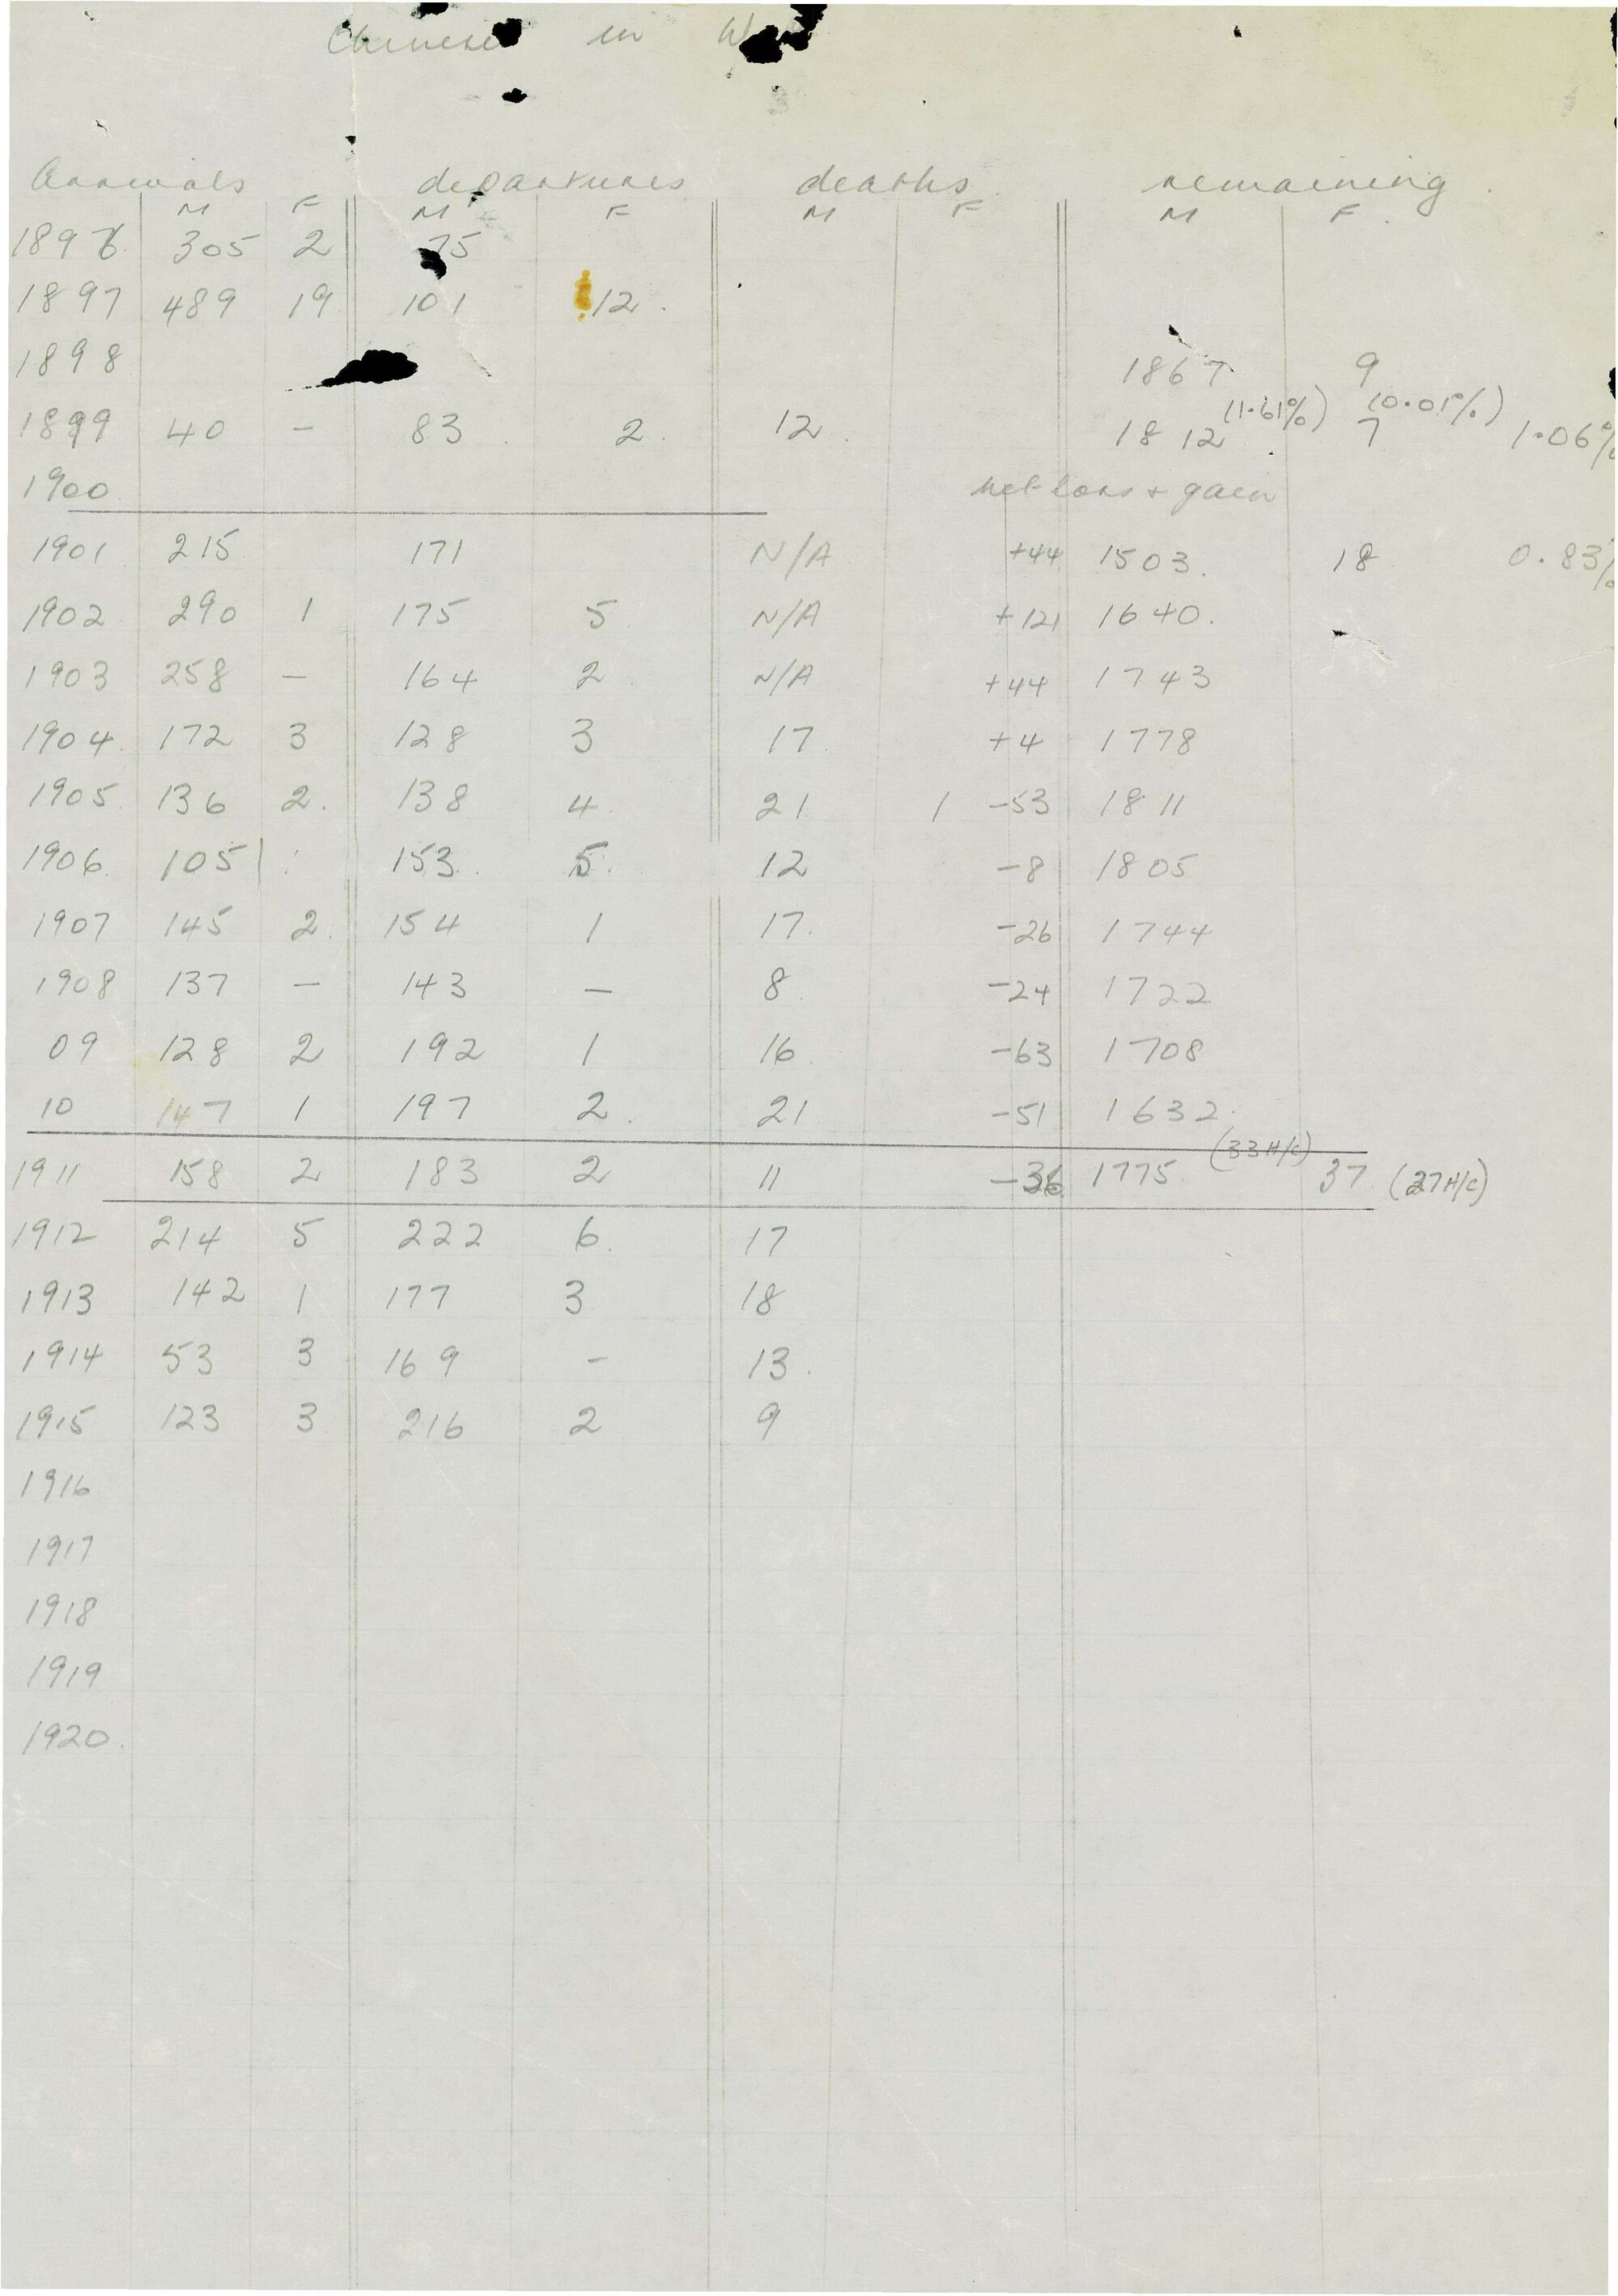 Chinese in W
Arrivals departures deaths remaining.
M F M F M F M F.
1896 305 2 75
1897 489 19 101 12.
1898 1867 9
(1.61%) (0.01%)
1899 40 – 83. 2. 12. 1812. 7 1.06%
1900 net loss + gain
1901 215 171 N/A +44 1503. 18 0.83%
1902 290 1 175 5 N/A +121 1640.
1903 258 – 164 2 N/A +44 1743
1904 172 3 128 3 17 +4 1778
1905 136 2. 138 4 21 1 -53 1811
1906 105 153. 5. 12 -8 1805
1907 145 2. 154 1 17. -26 1744
1908 137 – 143 – 8 -24 1722
09 128 2 192 1 16 -63 1708
10 147 1 197 2. 21 -51 1632
1911 158 2 183 2 11 -36 1775 (33 H/C) 37 (27 H/C)
1912 214 5 222 6 17
1913 142 1 177 3 18
1914 53 3 169 – 13.
1915 123 3 216 2 9
1916
1917
1918
1919
1920.